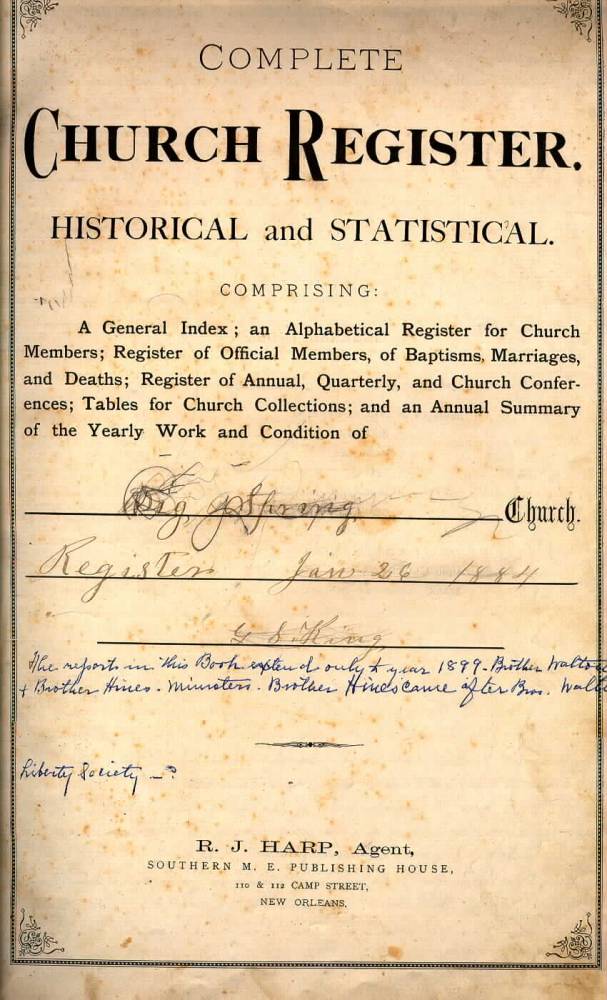 COMPLETE
CHURCH REGISTER.
HISTORICAL and STATISTICAL.
COMPRISING:
A General Index; an Alphabetical Register for Church
Members; Register of Official Members, of Baptisms, Marriages,
and Deaths; Register of Annual, Quarterly, and Church Confer-
ences; Tables for Church Collections; and an Annual Summary
of the Yearly Work and Condition of
Big Spring Church.
Register Jan 26 1884
G S. King
The reports in this Book extend only to year 1899. Brother Walto
+ Brother Hines. Ministers. Brother Hines came after Bro. Walt
Liberty Society - ?
R. J. HARP, Agent,
SOUTHERN M. E. PUBLISHING HOUSE,
110 & 112 CAMP STREET,
NEW ORLEANS.